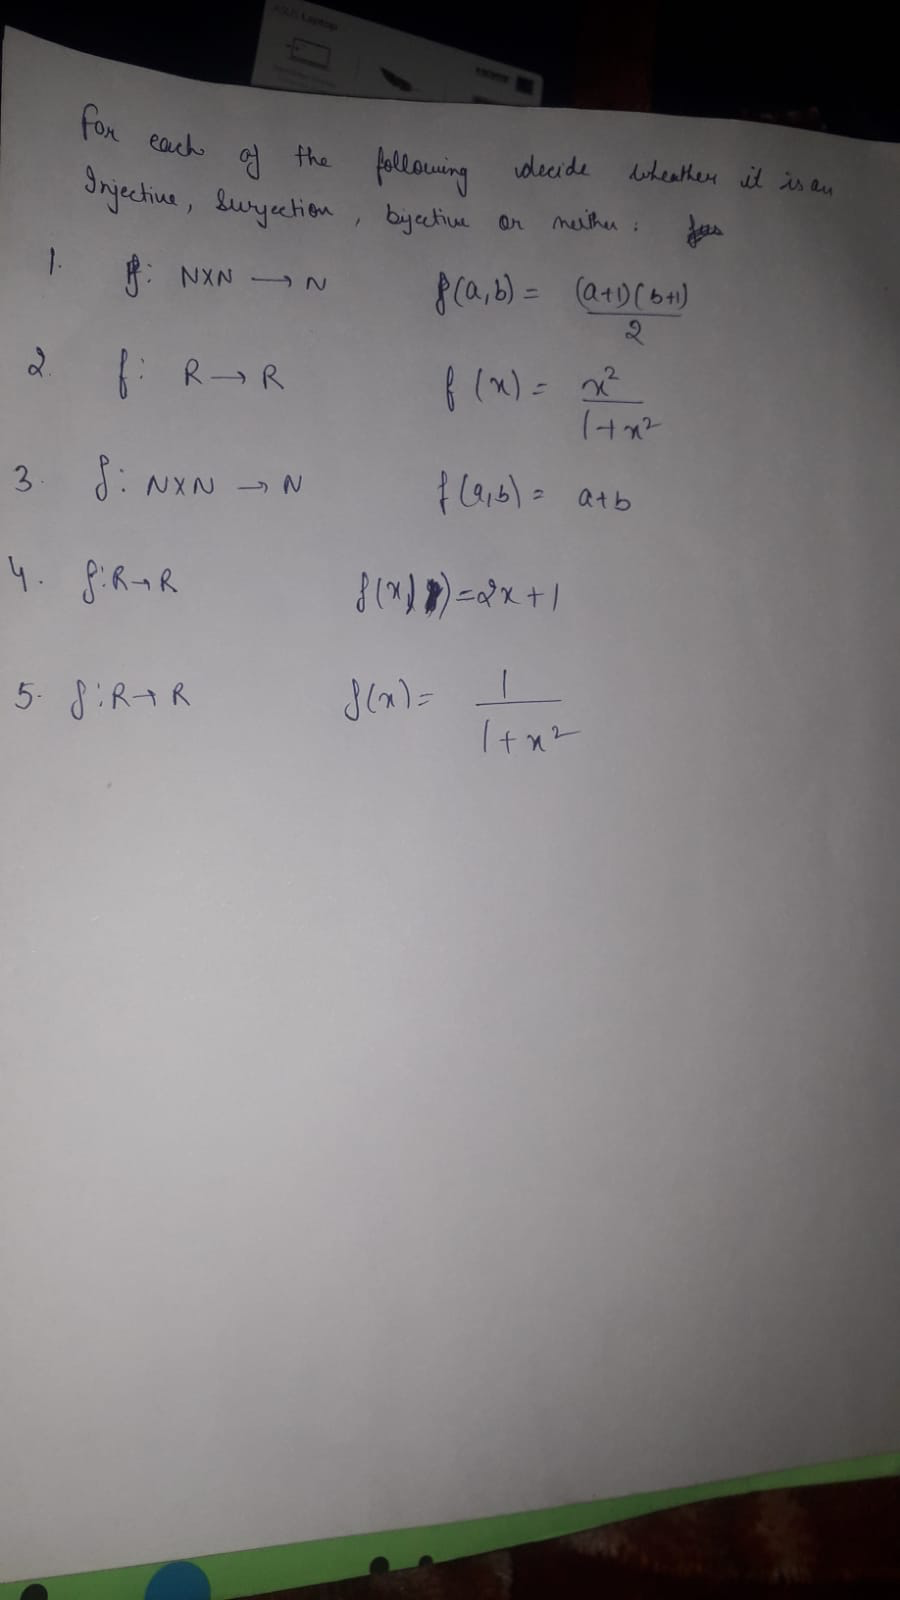 ASUS Laptop
For each of the following decide wheather it is an
Injective, Surjection, bijective or neither :
1. f: N×N → N f(a,b) = (a+1)(b+1)/2
2. f: R → R f(x) = x²/1+x²
3. f: N×N → N f(a,b) = a+b
4. f: R→R f(x) = 2x+1
5. f: R→R f(x) = 1/1+x²